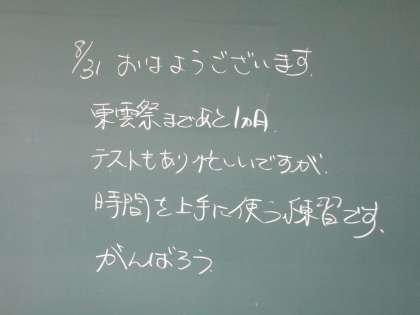 8/31 おはようございます.
東雲祭まであと1ヵ月.
テストもあり忙しいですが.
時間を上手に使う練習です.
がんばろう.